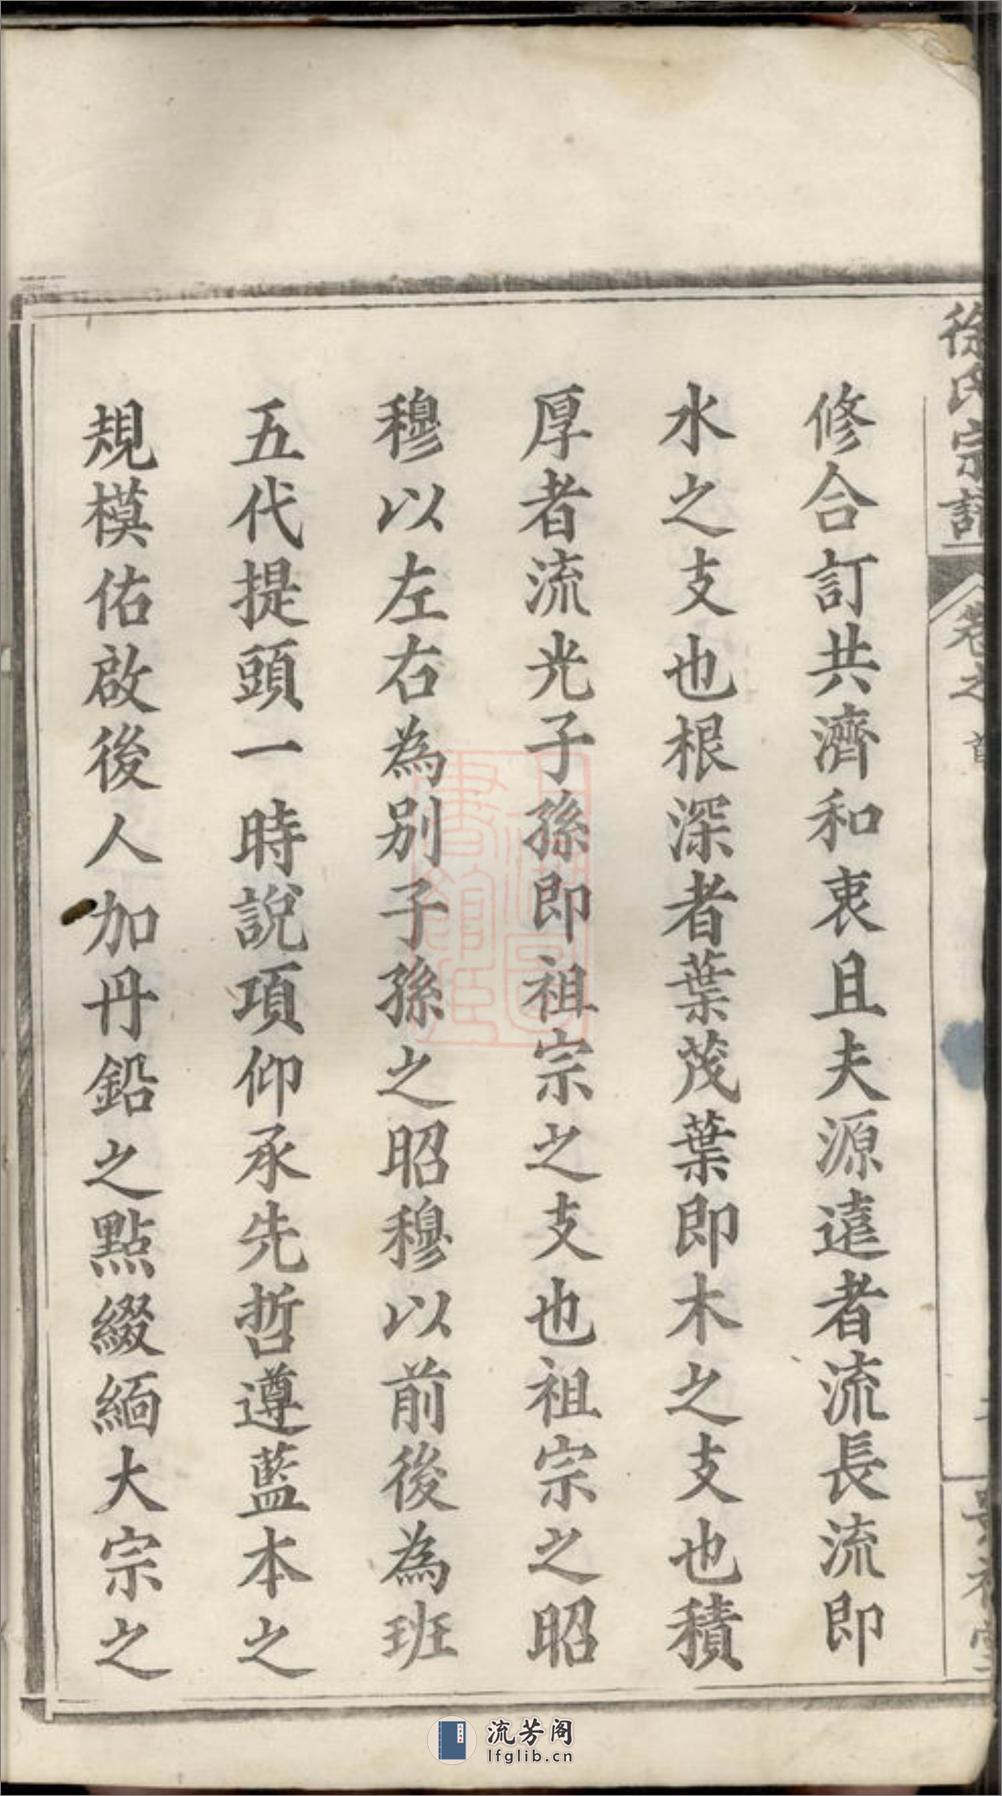 徐氏宗譜
卷之首
修合訂共濟和衷且夫源遠者流長流即
水之支也根深者葉茂葉即木之支也積
厚者流光子孫即祖宗之支也祖宗之昭
穆以左右為別子孫之昭穆以前後為班
五代提頭一時說項仰承先哲遵藍本之
規模佑啟後人加丹鉛之點綴緬大宗之
流芳阁
lfglib.cn